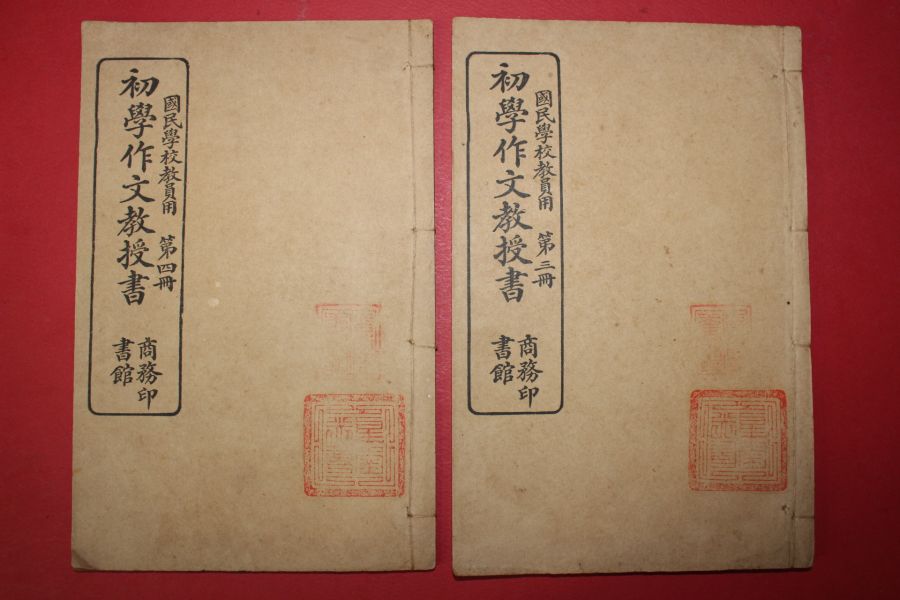 國民學校教員用 第四冊
初學作文教授書
商務印
書館
國民學校教員用 第三冊
初學作文教授書
商務印
書館